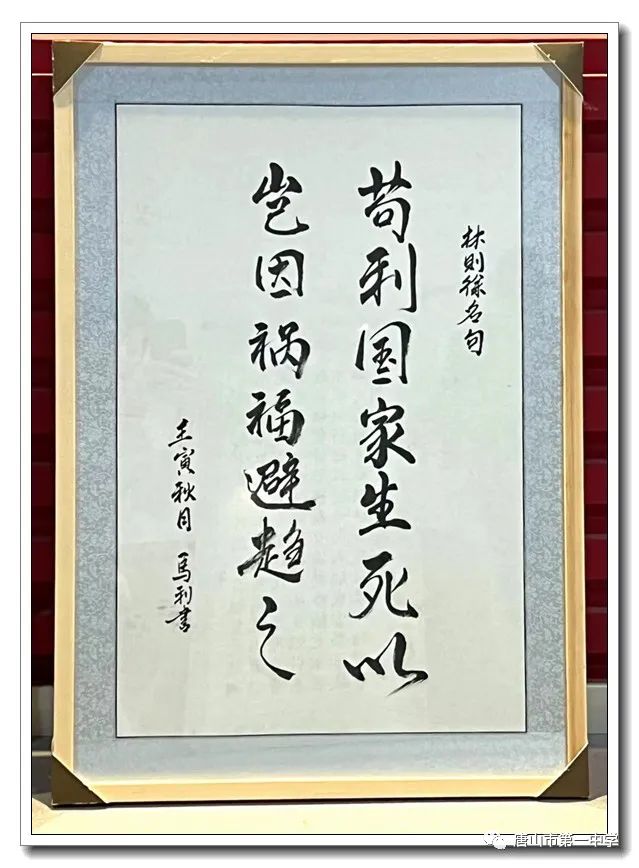 林则徐名句
苟利国家生死以
岂因祸福避趋之
壬寅秋月 马利书
唐山市第一中学